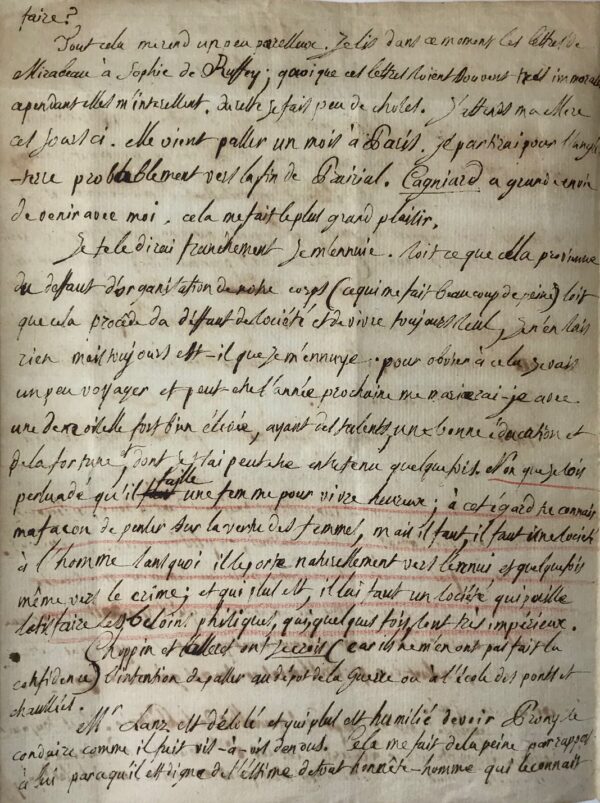 faire?
Tout cela me rend un peu paresseux. Je lis dans ce moment les lettres de
Mirabeau à Sophie de Ruffey; quoique ces lettres soient souvent très immorales
cependant elles m'interessent. du reste je fais peu de choses. J'attends ma Mere
ces jours ci. elle vient passer un mois à Paris. je partirai pour l'angle
-terre probablement vers la fin de Prairial. Cagniard a grande envie
de venir avec moi. cela me fait le plus grand plaisir.
Je te le dirai franchement je m'ennuie. soit ce que cela provienne
du deffaut d'organisation de notre corps (ce qui me fait beaucoup de peine) soit
que cela procède du deffaut de société et de vivre toujours seul, je n'en sais
rien mais toujours est-il que je m'ennuye; pour obvier à cela je vais
un peu voyager et peut-etre l'année prochaine me marierai-je avec
une demoiselle fort bien élevée, ayant des talents, une bonne éducation et
de la fortune, dont je t'ai peut etre entretenu quelquefois. Non que je sois
persuadé qu'il faille une femme pour vivre heureux; à cet égard tu connais
ma façon de penser sur la vertu des femmes, mais il faut, il faut une société
à l'homme sans quoi il se porte naturellement vers l'ennui et quelquefois
même vers le crime; et qui plus est, il lui faut un société qui puisse
satisfaire ses besoins phisiques, qui quelques fois, sont très impérieux.
Choppin et ont je crois (car ils ne m'en ont pas fait la
confidence) l'intention de passer au depot de la Guerre ou à l'école des ponts et
chaussées.
Mr. Lanz est désolé et qui plus est humilié de voir Prony se
conduire comme il fait vis-à-vis de nous. Cela me fait de la peine par rapport
à lui parcequ'il est digne de l'estime de tout honnête-homme qui le connait